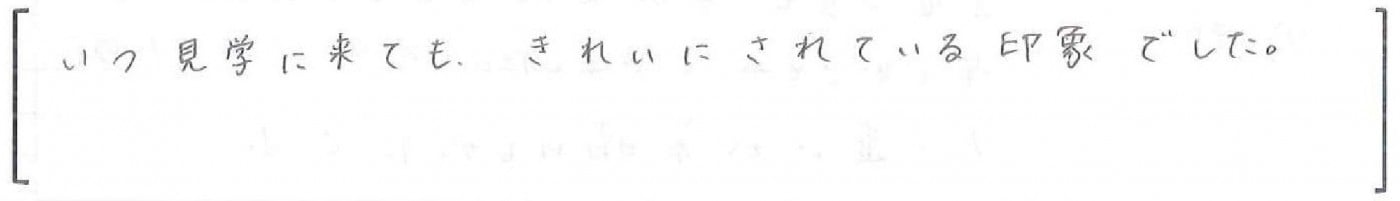 いつ見学に来ても、きれいにされている印象でした。